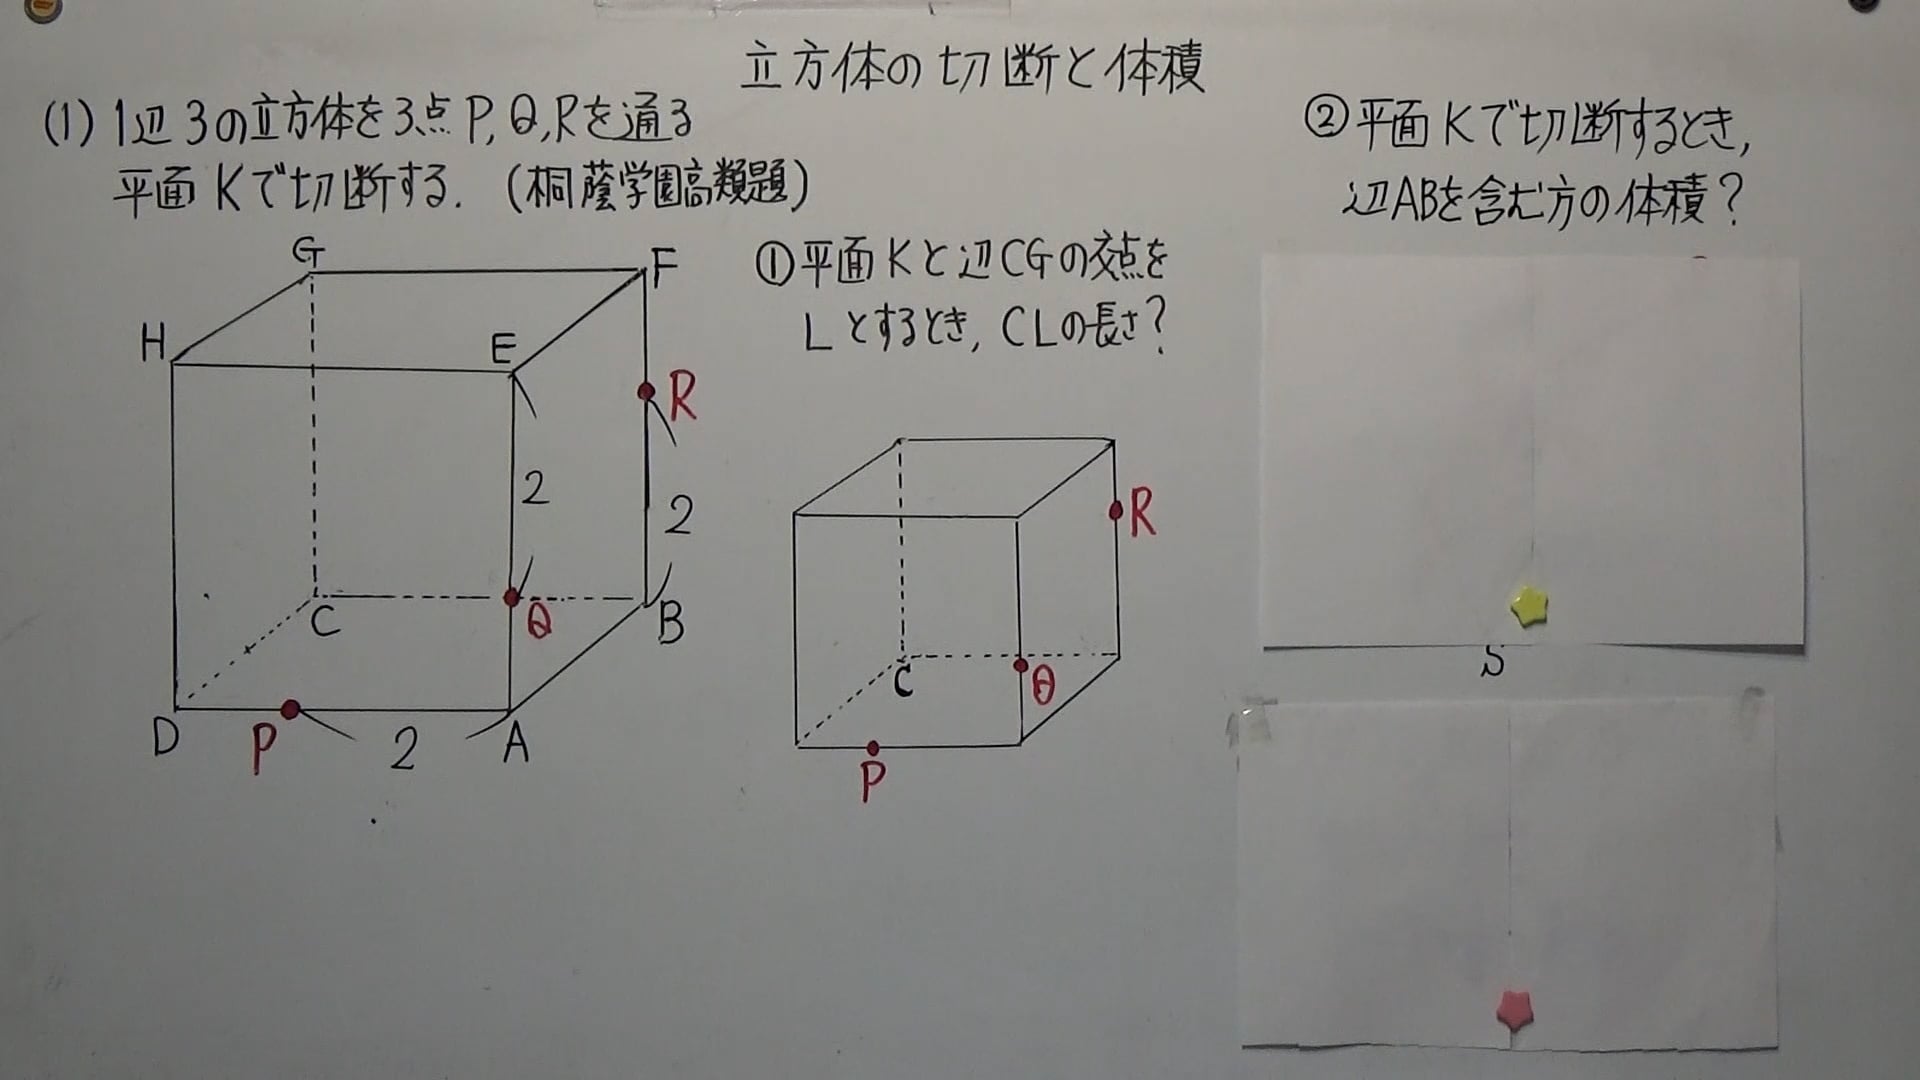 立方体の切断と体積
(1) 1辺3の立方体を3点P,Q,Rを通る
平面Kで切断する. (桐蔭学園高類題)
G
F
H
E
R
2
2
C
Q
B
D
P
2
A
①平面Kと辺CGの交点を
Lとするとき, CLの長さ?
R
C
Q
P
②平面Kで切断するとき,
辺ABを含む方の体積?